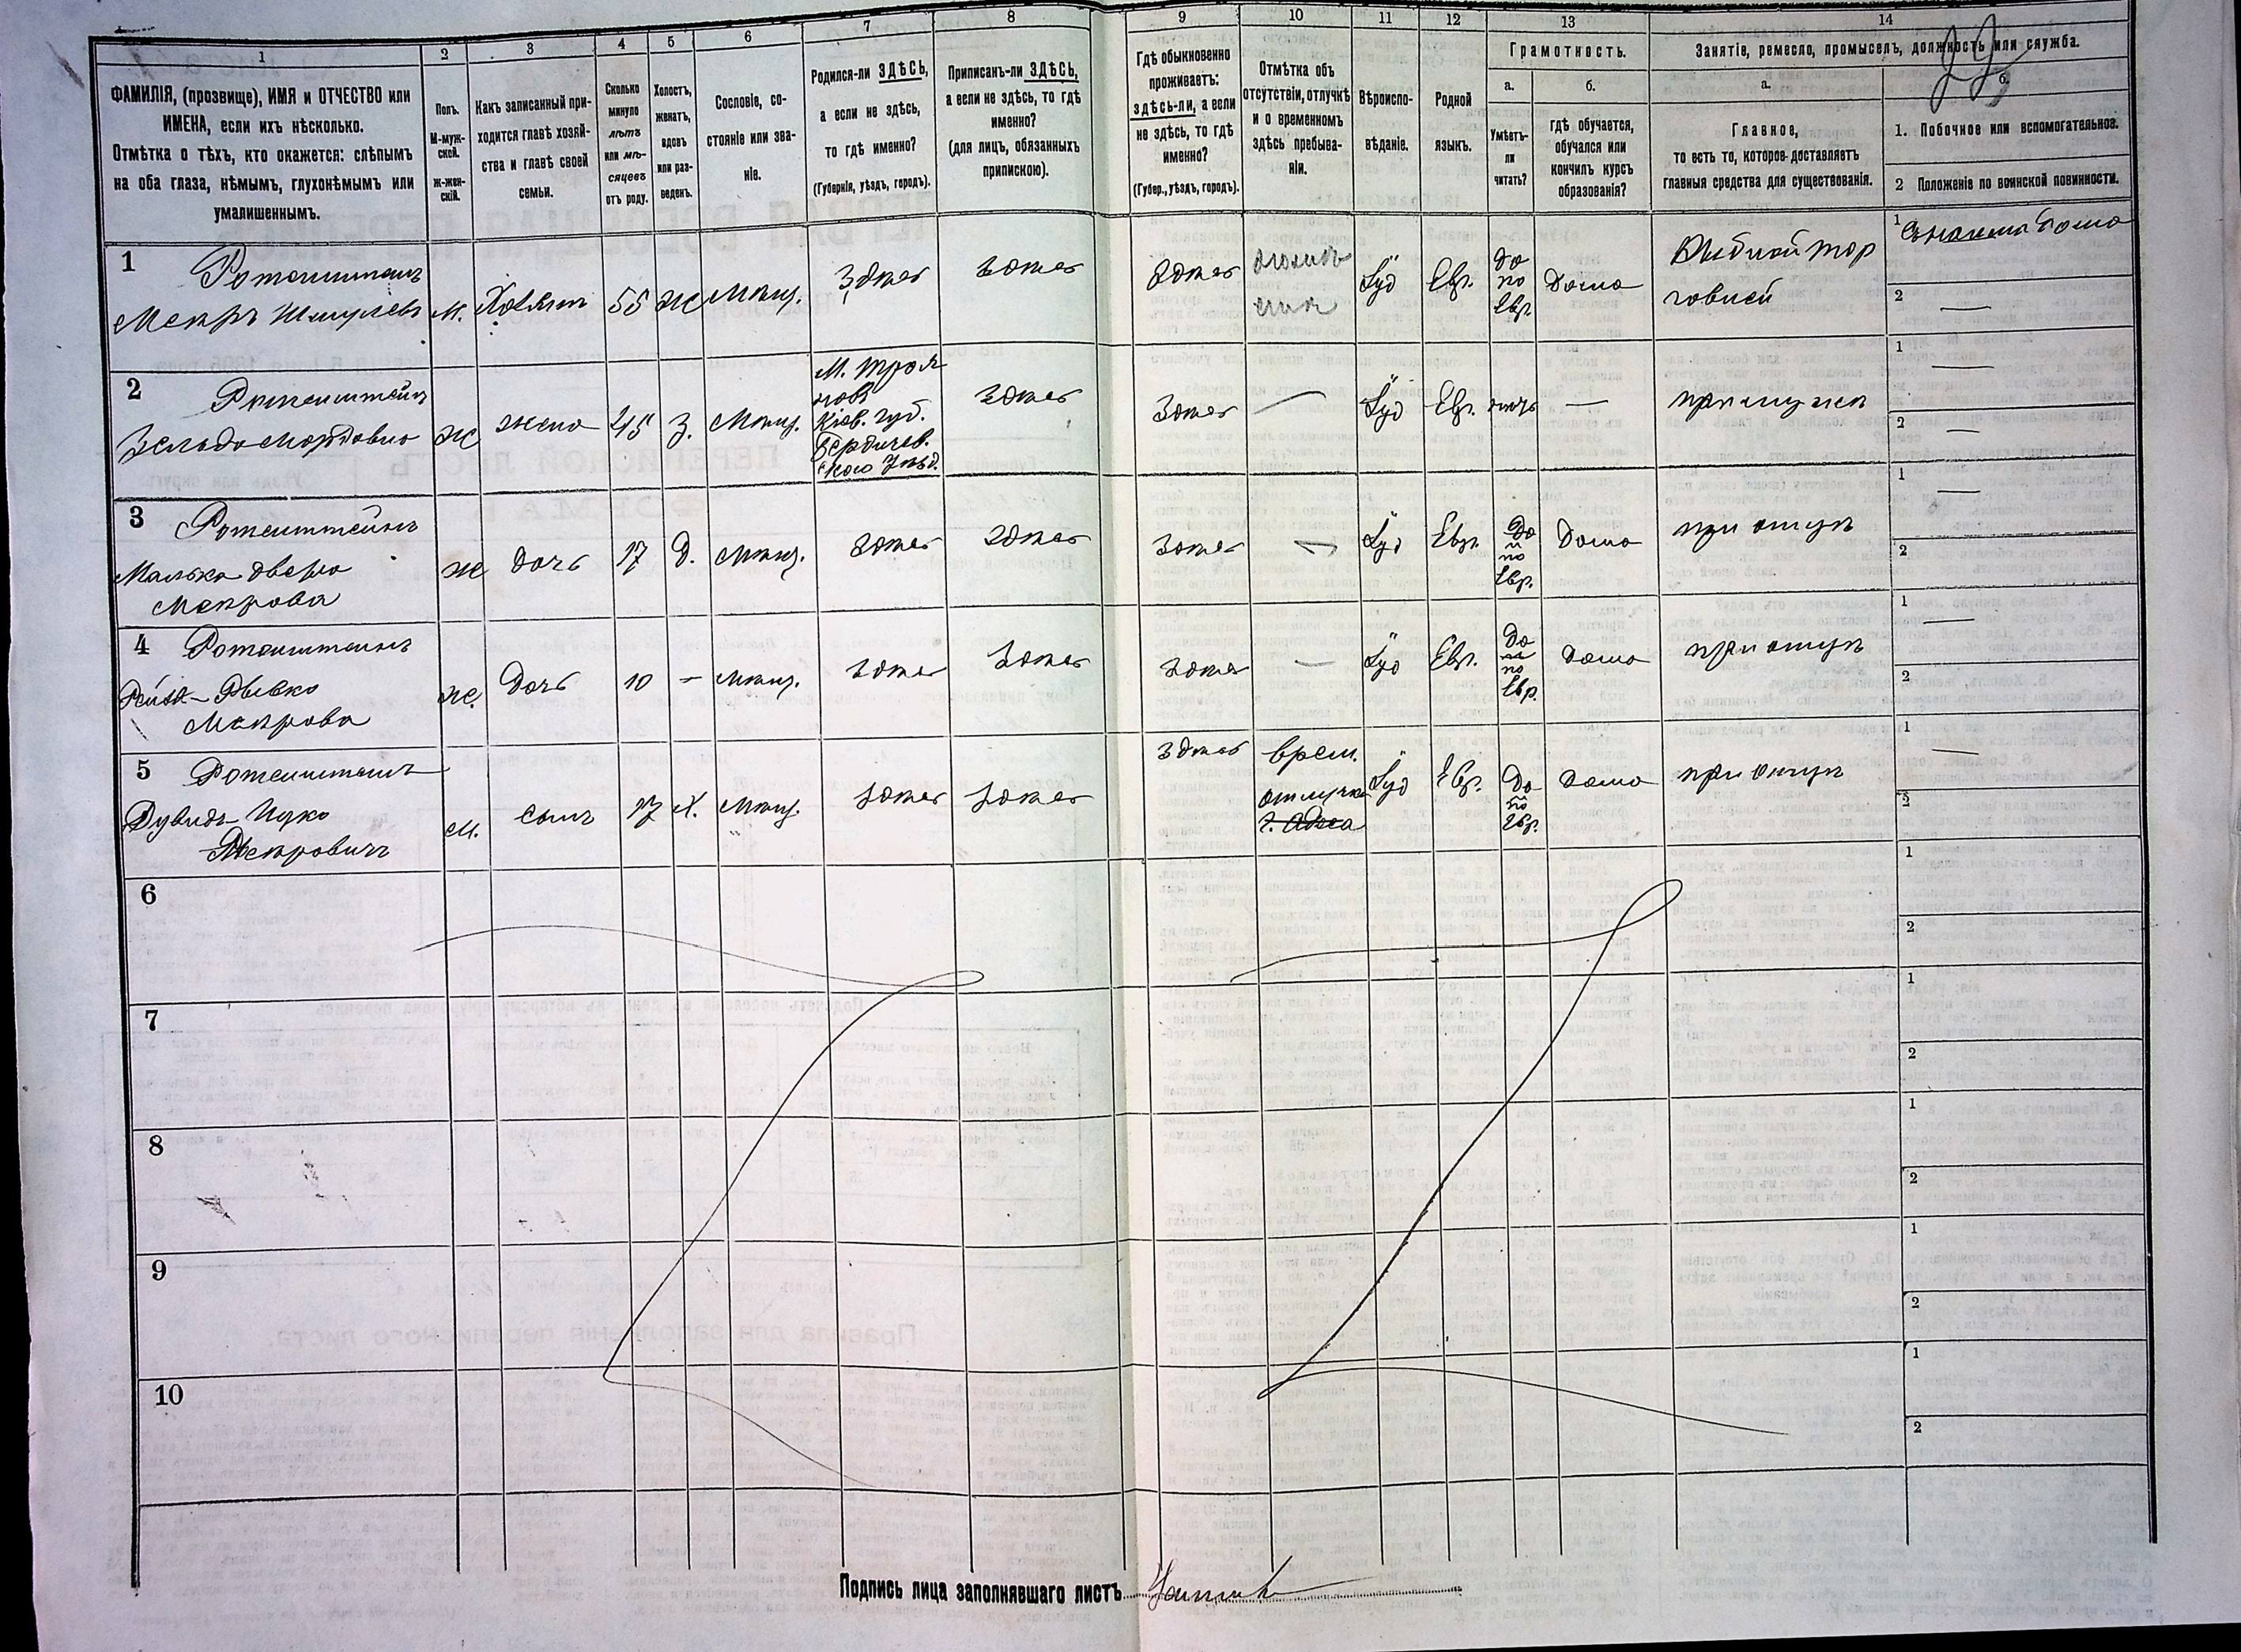 1
2
3
4
5
6
7
8
9
10
11
12
13
14
ФАМИЛІЯ, (прозвище), ИМЯ и ОТЧЕСТВО или
ИМЕНА, если ихъ нѣсколько.
Отмѣтка о тѣхъ, кто окажется: слѣпымъ
на оба глаза, нѣмымъ, глухонѣмымъ или
умалишеннымъ.
Полъ.
М-муж-
ской.
Ж-жен-
скій.
Какъ записанный при-
ходится главѣ хозяй-
ства и главѣ своей
семьи.
Сколько
минуло
лѣтъ
или мѣ-
сяцевъ
отъ роду.
Холостъ,
женатъ,
вдовъ
или раз-
веденъ.
Сословіе, со-
стояніе или зва-
ніе.
Родился-ли ЗДѢСЬ,
а если не здѣсь,
то гдѣ именно?
(Губернія, уѣздъ, городъ).
Приписанъ-ли ЗДѢСЬ,
а если не здѣсь, то гдѣ
именно?
(для лицъ, обязанныхъ
припискою).
Гдѣ обыкновенно
проживаетъ:
здѣсь-ли, а если
не здѣсь, то гдѣ
именно?
(Губер., уѣздъ, городъ).
Отмѣтка объ
отсутствіи, отлучкѣ
и о временномъ
здѣсь пребыва-
ніи.
Вѣроиспо-
вѣданіе.
Родной
языкъ.
Грамотность.
а.
Умѣетъ-
ли
читать?
б.
гдѣ обучается,
обучался или
кончилъ курсъ
образованія?
Занятіе, ремесло, промыселъ, должность или служба.
а.
Главное,
то есть то, которое доставляетъ
главныя средства для существованія.
б.
1. Побочное или вспомогательное.
2 Положеніе по воинской повинности.
1
Ротенштейнъ
Мееръ Шмулевъ
М.
Хозяинъ
55
Ж
Мѣщ.
Здѣсь
Здѣсь
Здѣсь
Іуд
Евр.
да
по
Евр.
Дома
торговлей
1
2
2
Ротенштейнъ
Зельда Мордовна
Ж
жена
45
З.
Мѣщ.
Кіев. губ.
Бердичев.
ского Уѣзд.
Здѣсь
Здѣсь
—
Іуд
Евр.
—
при мужѣ
1
—
2
—
3
Ротенштейнъ
Малька Двейра
Меерова
Ж
дочь
17
Д.
Мѣщ.
Здѣсь
Здѣсь
Здѣсь
—
Іуд
Евр.
да
по
Евр.
Дома
при отцѣ
1
—
2
4
Ротенштейнъ
Рывка
Меерова
Ж.
дочь
10
—
Мѣщ.
Здѣсь
Здѣсь
Здѣсь
—
Іуд
Евр.
да
по
Евр.
дома
при отцѣ
1
—
2
5
Ротенштейнъ
Дувидъ-Ицко
Мееровичъ
М.
сынъ
17
Х.
Мѣщ.
Здѣсь
Здѣсь
Здѣсь
врем.
отлучка
г. Адеса
Іуд
Евр.
да
по
Евр.
дома
при отцѣ
1
—
2
6
1
2
7
1
2
8
1
2
9
1
2
10
1
2
Подпись лица заполнявшаго листъ